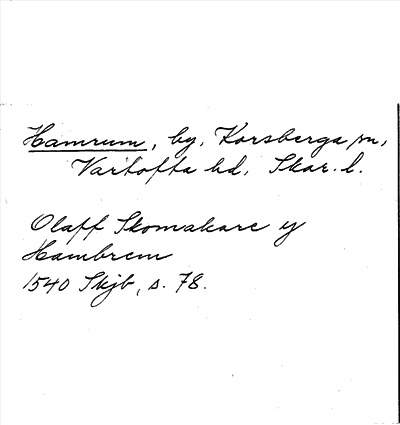 Hamrum, by, Korsberga sn,
Vartofta hd, Skar. l.
Olaff Skomakare y
Hambrem
1540 Skjb, s. 78.